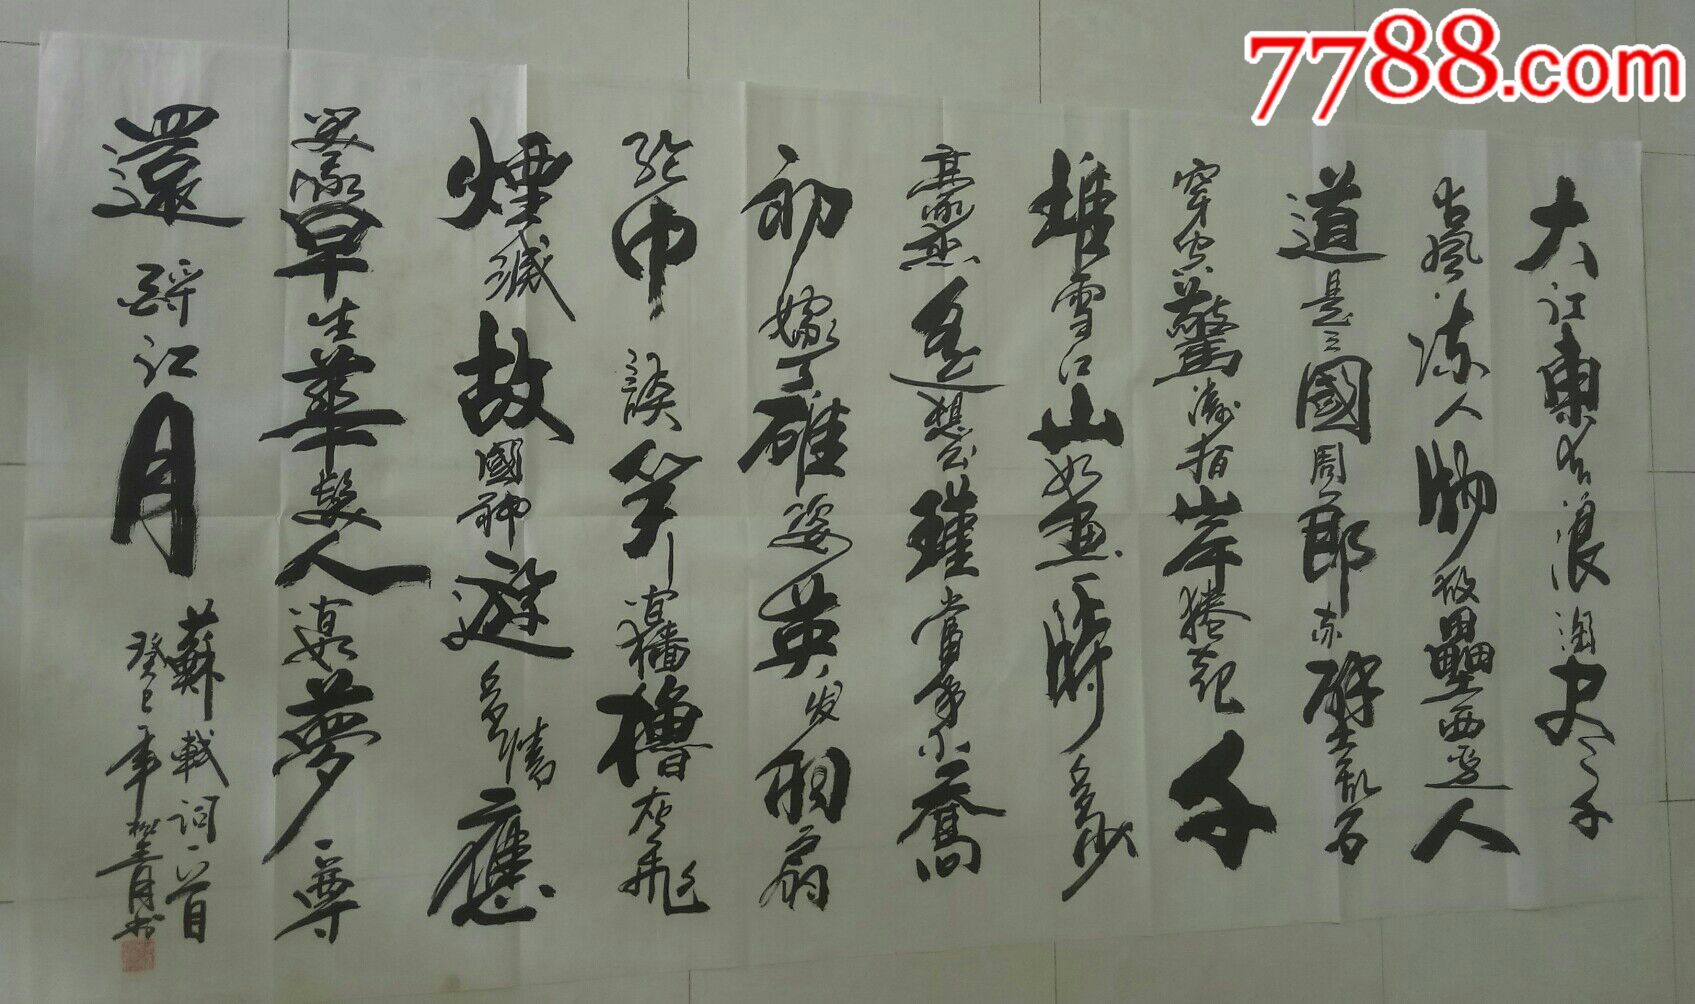 7788.com
大江東去浪淘尽千
古風流人物故壘西邊人
道是三國周郎赤壁乱石
穿空驚濤拍岸捲起千
堆雪江山如畫一時多少
豪傑遥想公瑾當年小喬
初嫁了雄姿英发羽扇
綸巾談笑间檣櫓灰飛
煙滅故國神遊多情應
笑我早生華髮人间如夢一尊
還酹江月
蘇軾词一首
癸巳年